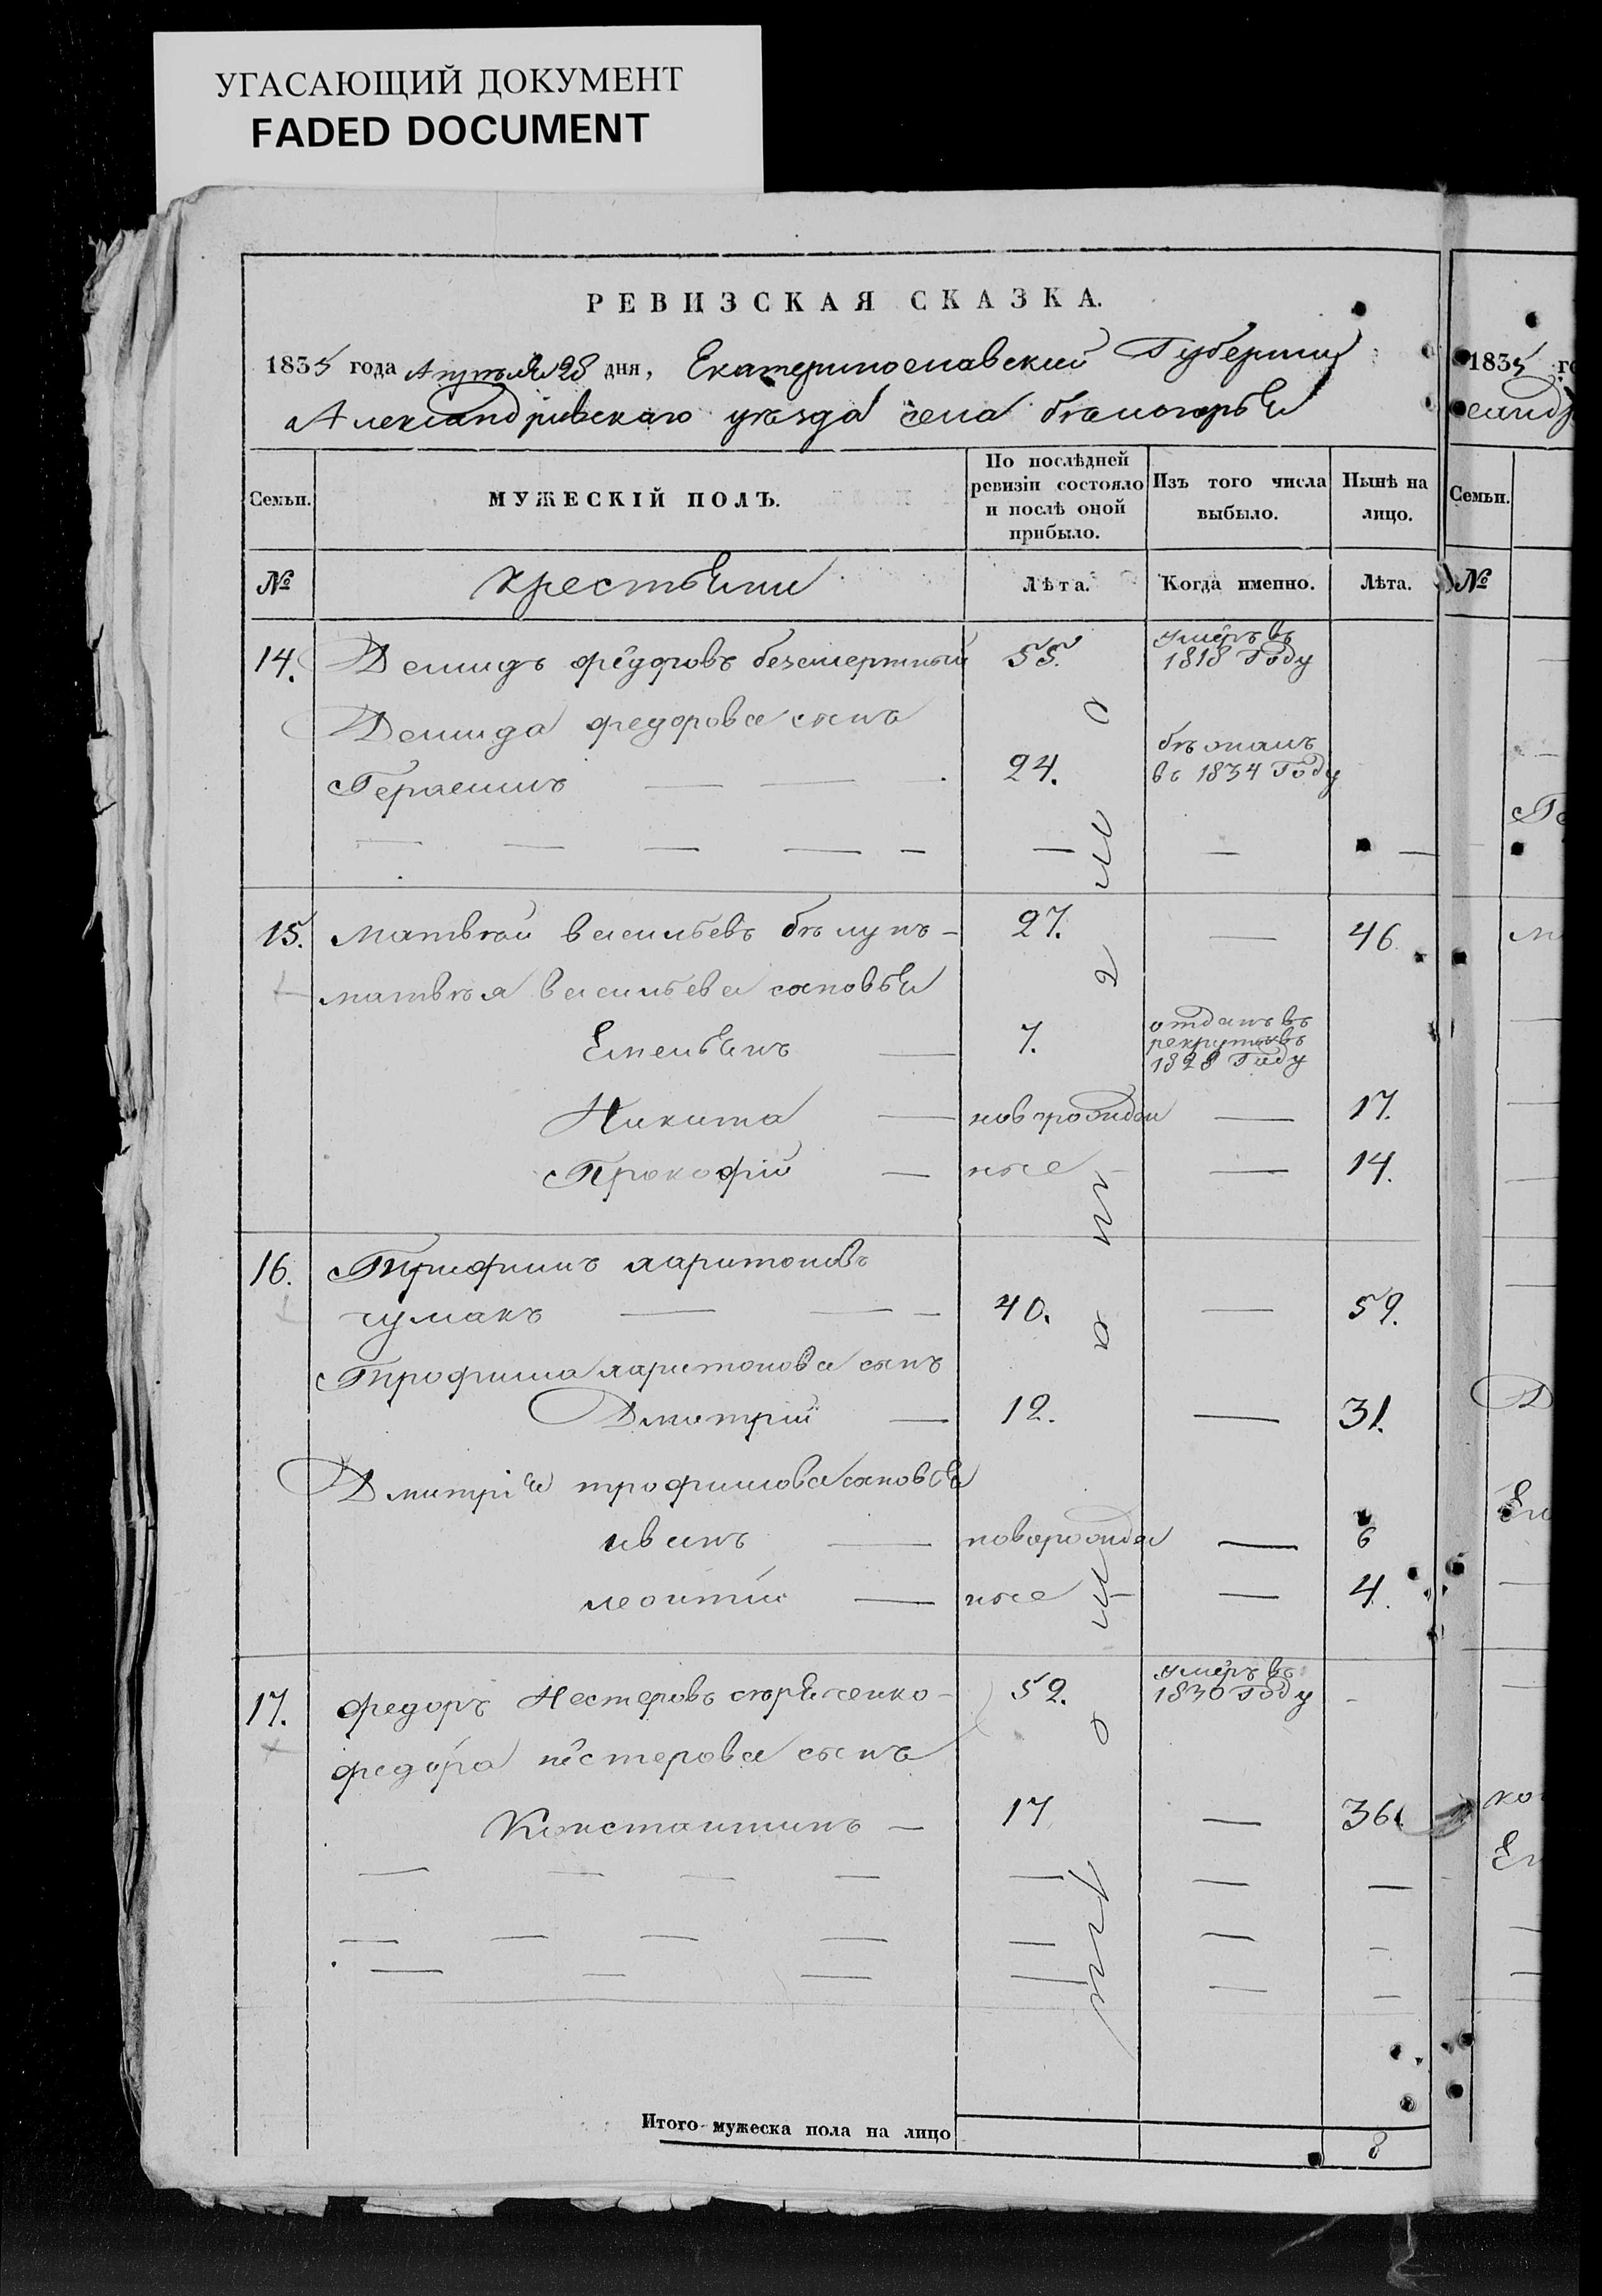 УГАСАЮЩИЙ ДОКУМЕНТ
FADED DOCUMENT
РЕВИЗСКАЯ СКАЗКА.
1835 года Апрѣля 28 дня, Екатеринославской Губернии
Александровскаго уѣзда села бѣлогорья
Семьи. МУЖЕСКІЙ ПОЛЪ. По послѣдней ревизіи состояло и послѣ оной прибыло. Изъ того числа выбыло. Нынѣ на лицо.
№ крестьяни Лѣта. Когда именно. Лѣта.
14. Демидъ фёдоровъ безсмертный 55. умеръ въ 1818 Году
Демида федорова сынъ
Герасимъ — — 24. бѣжалъ въ 1834 Году
15. матвѣй васильевъ бѣлунъ - 27. — 46
матвѣя васильева сыновья
Емельянъ — 7. отданъ въ рекруты въ 1828 Году
Никита — новорожден — 17.
Прокофій — ные — 14.
16. Трофимъ харитоновъ
чумакъ — — 40. — 59.
Трофима харитонова сынъ
Дмитрій — 12. — 31.
Дмитрія трофимова сыновья
иванъ — новорожде — 6
леонтій — ные — 4.
17. федоръ Нестеровъ 52. умеръ въ 1830 Году -
федора нестерова сынъ
Константинъ — 17 — 36.
Итого мужеска пола на лицо 8
1835 го
Семьи.
№